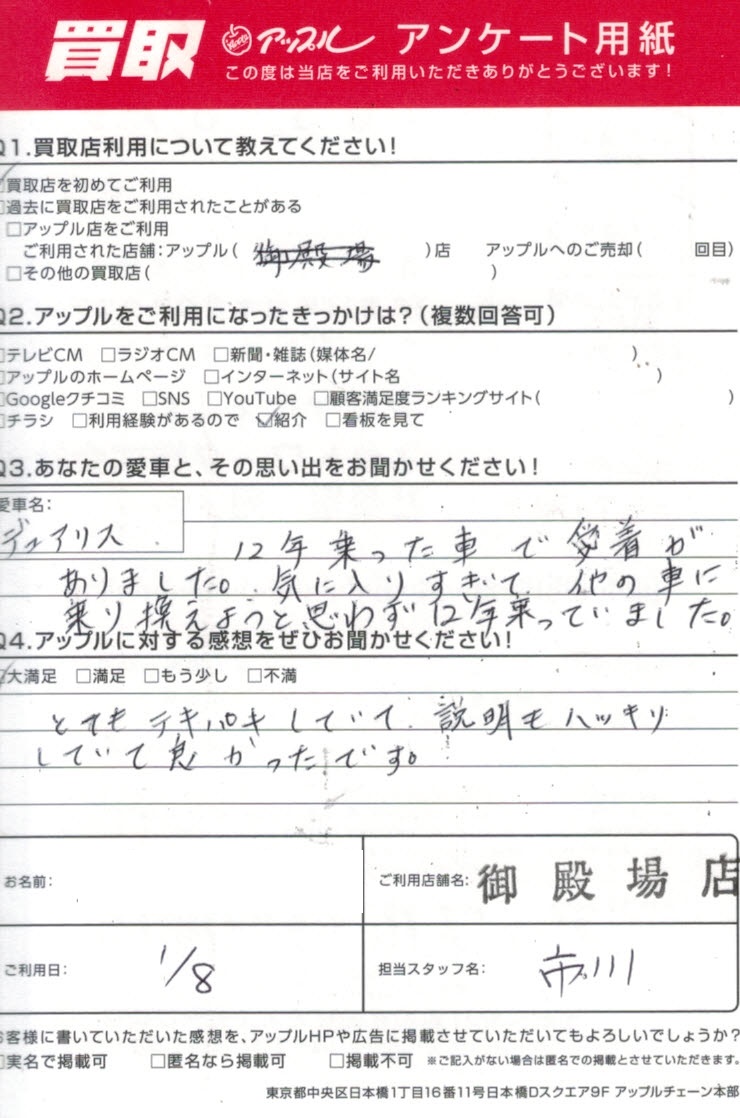 買取 アップル アンケート用紙
この度は当店をご利用いただきありがとうございます!
Q1.買取店利用について教えてください!
☑買取店を初めてご利用
□過去に買取店をご利用されたことがある
□アップル店をご利用
ご利用された店舗:アップル( 御殿場 )店 アップルへのご売却( 回目)
□その他の買取店( )
Q2.アップルをご利用になったきっかけは?(複数回答可)
□テレビCM □ラジオCM □新聞・雑誌(媒体名/ )
□アップルのホームページ □インターネット(サイト名 )
□Googleクチコミ □SNS □YouTube □顧客満足度ランキングサイト( )
□チラシ □利用経験があるので ☑紹介 □看板を見て
Q3.あなたの愛車と、その思い出をお聞かせください!
愛車名:
デュアリス
12年乗った車で愛着が
ありました。気に入りすぎて他の車に
乗り換えようと思わず12年乗っていました。
Q4.アップルに対する感想をぜひお聞かせください!
☑大満足 □満足 □もう少し □不満
とてもテキパキしていて、説明もハッキリ
していて良かったです。
お名前:
ご利用店舗名: 御殿場店
ご利用日: 1/8
担当スタッフ名: 市川
お客様に書いていただいた感想を、アップルHPや広告に掲載させていただいてもよろしいでしょうか?
□実名で掲載可 □匿名なら掲載可 □掲載不可 ※ご記入がない場合は匿名での掲載とさせていただきます。
東京都中央区日本橋1丁目16番11号日本橋Dスクエア9F アップルチェーン本部